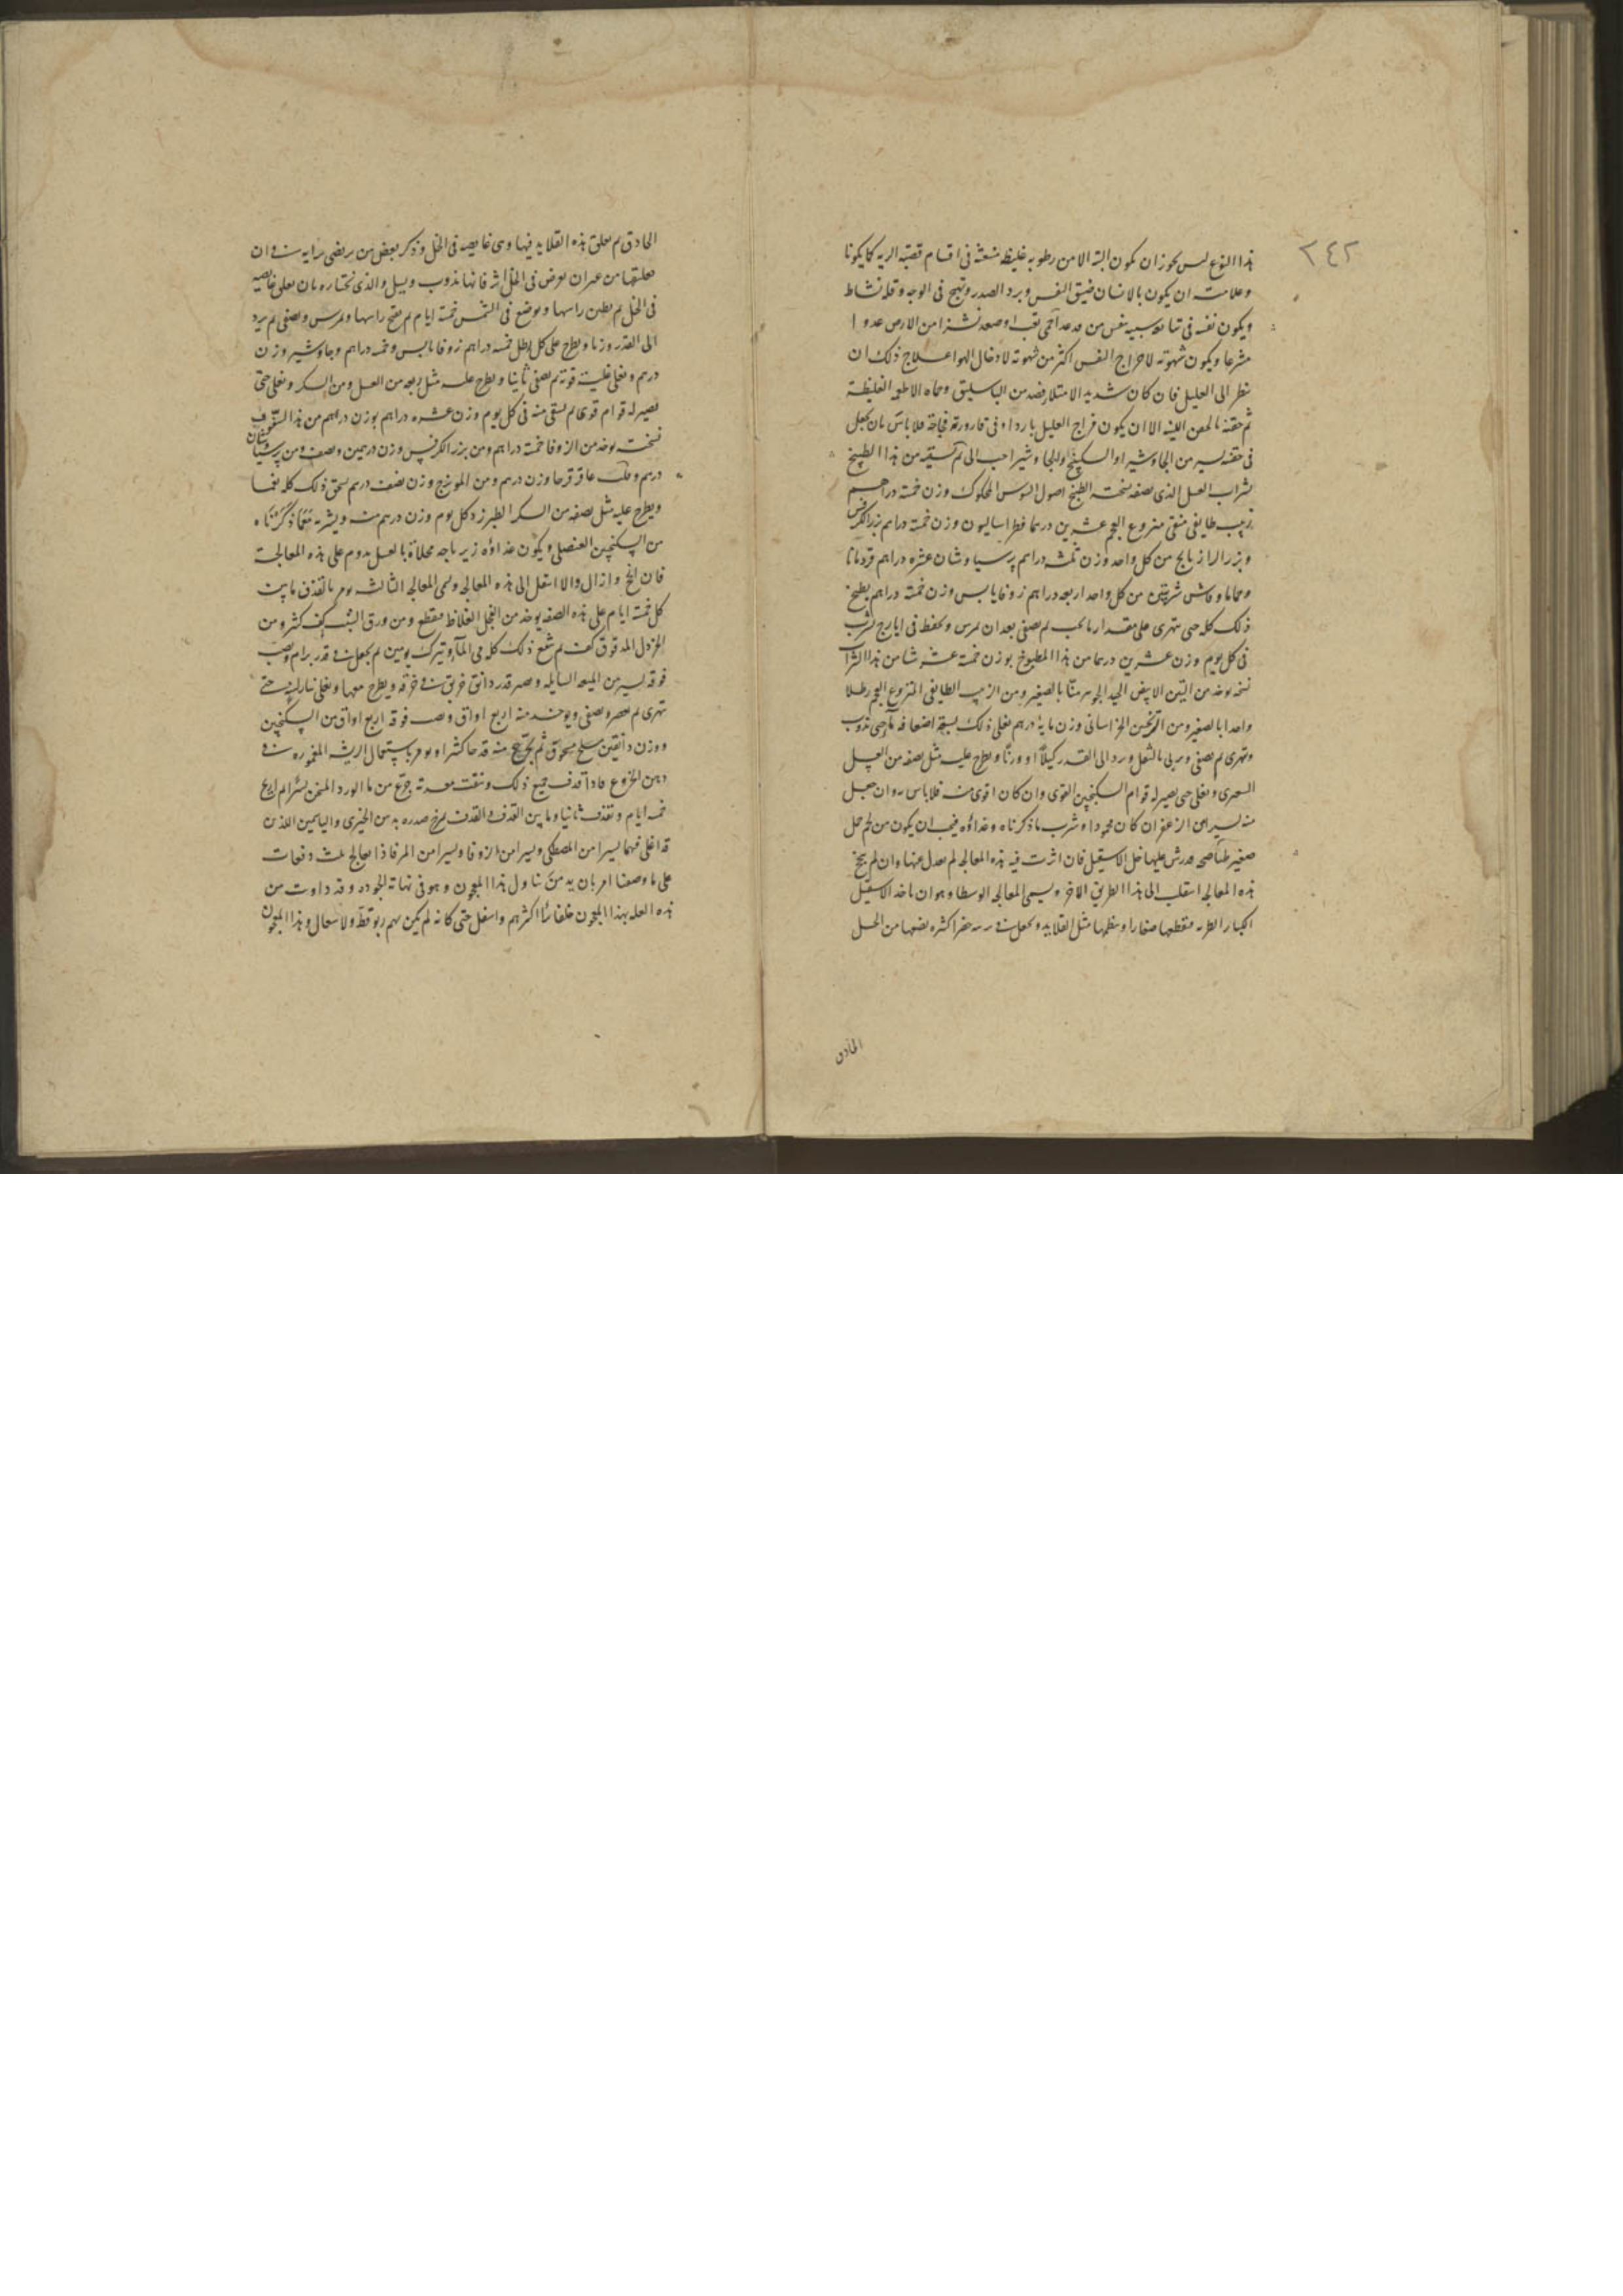 ٢٤٢
هذا النوع ليس يجوز ان يكون البتة الا من رطوبه غليظه منبثه فى اقسام قصبة الريه كما يكونا
وعلامته ان يكون بالانسان ضيق النفس وبرد الصدر وتهيج فى الوجه وقله نشاط
ويكون نفسه فى نفس من قد عدا حتى تعب او صعد نشزا من الارض عدوا
مشرعا ويكون شهوته لاخراج النفس اكثر من شهوته لادخال الهوا علاج ذلك ان
ينظر الى العليل فان كان شديد الامتلا فصد من الباسليق وحماه الاطعمه الغليظة
ثم حقنه بالحقن اللينه الا ان يكون مزاج العليل باردا وفى قارورته فجاجة فلا باس بان يجعل
فى حقنه يسير من الجاوشير او السكبينج والجاوشير احب الى ثم تسقيه من هذا الطبيخ
بشراب العسل الذى نصفه نسخته الطبخ اصول السوس المحكوك وزن خمسة دراهم
زبيب طايفى منقى منزوع العجم عشرين درهما فطراساليون وزن خمسة دراهم بزر الكرفس
وبزر الرازيانج من كل واحد وزن ثلثه دراهم پرسياوشان عشره دراهم قردمانا
وحماما من كل واحد اربعه دراهم زوفا يابس وزن خمسة دراهم يطبخ
ذلك كله حتى يتهرى على مقدار ما يجب ثم يصفى بعد ان يمرس ويحفظ فى يشرب
فى كل يوم وزن عشرين درهما من هذا المطبوخ بوزن خمسة عشر من هذا الشراب
نسخته يوخذ من التين الابيض الجيد الجوهر منّا بالصغير ومن الزبيب الطايفى المنزوع العجم رطلا
واحدا بالصغير ومن الترنجبين الخراسانى وزن مايه درهم يغلى ذلك بسبعة اضعافه مآ حتى يذوب
ويتهرى ثم يصفى ويرمى بالثفل ويرد الى القدر كيلاً او وزنًا ويطرح عليه مثل نصفه من العسل
ويغلى حتى يصير له قوام السكنجبين القوى وان كان اقوى منه فلا باس وان جعل
منه يسير من الزعفران كان محمودا وشرب ما ذكرناه وغذاؤه فيجب ان يكون من لحم حمل
صغير عليها خل الاسقيل فان اثرت فيه هذه المعالجه لم يعدل عنها وان لم ينجع
هذه المعالجه انتقلت الى هذا الطريق الاخر ويسمى المعالجه الوسطا وهو ان ياخذ الاسقيل
الكبار الطريه فتقطعها صغارا وينظمها مثل القلايد ويجعل فى خضرا كثره بضعها من الخل
الحاذق
الحاذق ثم يعلق هذه القلايد فيها وهى غايصه فى الخل وذكر بعض من يرتضى برايه فى ان
تعليقها من غير ان يعرض فى الخل اثر فانها تذوب ويسيل والذى نختاره بان يعلى غايصه
فى الخل ثم يطين راسها ويوضع فى الشمس خمسة ايام ثم يفتح راسها ويمرس ويصفى ثم يرد
الى القدر وزنا ويطرح على كل رطل خمسه دراهم زوفا يابس وخمسه دراهم وجاوشير وزن
درهم ويغلى غلية قويه ثم يصفى ثانيا ويطرح عليه مثل ربعه من العسل ومن السكر ويغلى حتى
يصير له قوام قوى ثم يسقى منه فى كل يوم وزن عشره دراهم بوزن درهم من هذا السفوف
نسخته يوخذ من الزوفا خمسة دراهم ومن بزر الكرفس وزن درهمين ونصف ومن پرسياوشان
درهم عاقرقرحا وزن درهم ومن المويزج وزن نصف درهم يسحق ذلك كله نعما
ويطرح عليه مثل نصفه من السكر الطبرزد كل يوم وزن درهم منه ويشربه بما ذكرناه
من السكنجبين العنصلى ويكون غذاؤه زيرباجه محلاة بالعسل يدوم على هذه المعالجة
فان انجح وازال والا انتقل الى هذه المعالجه وهى المعالجه الثالثه يومر بالقذف ما بين
كل خمسة ايام على هذه الصفه يوخذ من الفجل الغلاظ مقطع ومن ورق الشبث كف كثير ومن
الخردل المدقوق كف ثم ينقع ذلك كله فى المآء ويترك يومين ثم يجعل فى قدر برام ويصب
فوقه يسير من الميعه السايله ويصير قدر دانق خربق فى خرقه ويطرح معها ويغلى بنار لينه حتى
يتهرى ثم يعصر ويصفى ويوخذ منه اربع اواق ويصب فوقه اربع اواق من السكنجبين
ووزن دانقين ملح مسحوق ثم يجرع منه قدحا كثيرا ويومر باستعمال الريشه المغموره فى
دهن الخروع فاذا قذف جميع ذلك ونقت معدته جرّع من ما الورد المسخن ثم اربع
خمسه ايام ويقذف ثانيا وما بين القذف والقذف يمرخ صدره بدهن الخيرى والياسمين اللذين
قد اغلى فيهما يسيرا من المصطكى ويسيرا من الزوفا ويسيرا من المر فاذا عالج ثلث دفعات
على ما وصفنا امر بان يدمن تناول هذا المعجون وهو فى نهاية الجوده وقد داويت من
هذه العله بهذا المعجون خلقا اكثرهم حتى كانه لم يكن بهم ربو قط ولا سعال وهذا المعجون